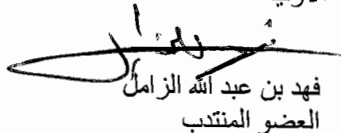 فهد بن عبد الله الزامل
العضو المنتدب